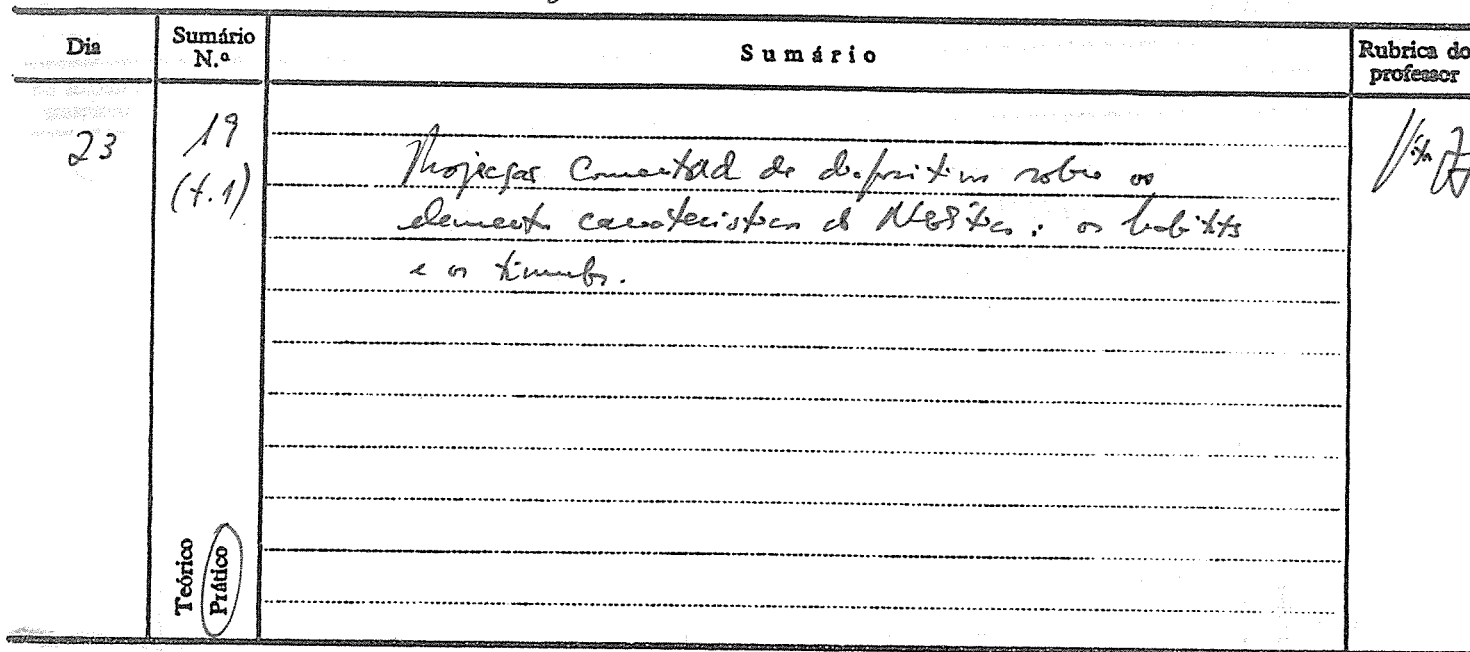 Dia
Sumário N.º
Sumário
Rubrica do professor
23
19
(t.1)
Projecção Comentada de diapositivos sobre os
elementos característicos do Neolítico: os habitats
e os túmulos.
Teórico
Prático